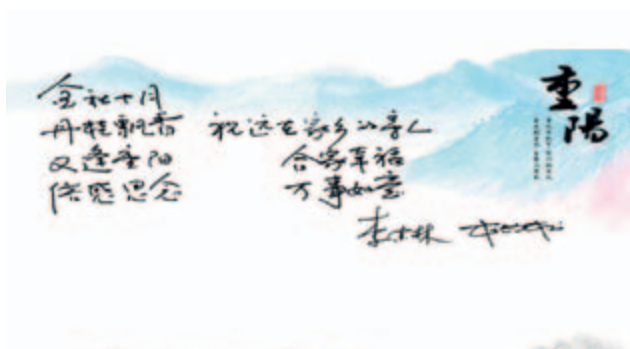 金秋十月
丹桂飘香
又逢重阳
倍感思念
祝远在家乡的亲人
合家幸福
万事如意
重陽